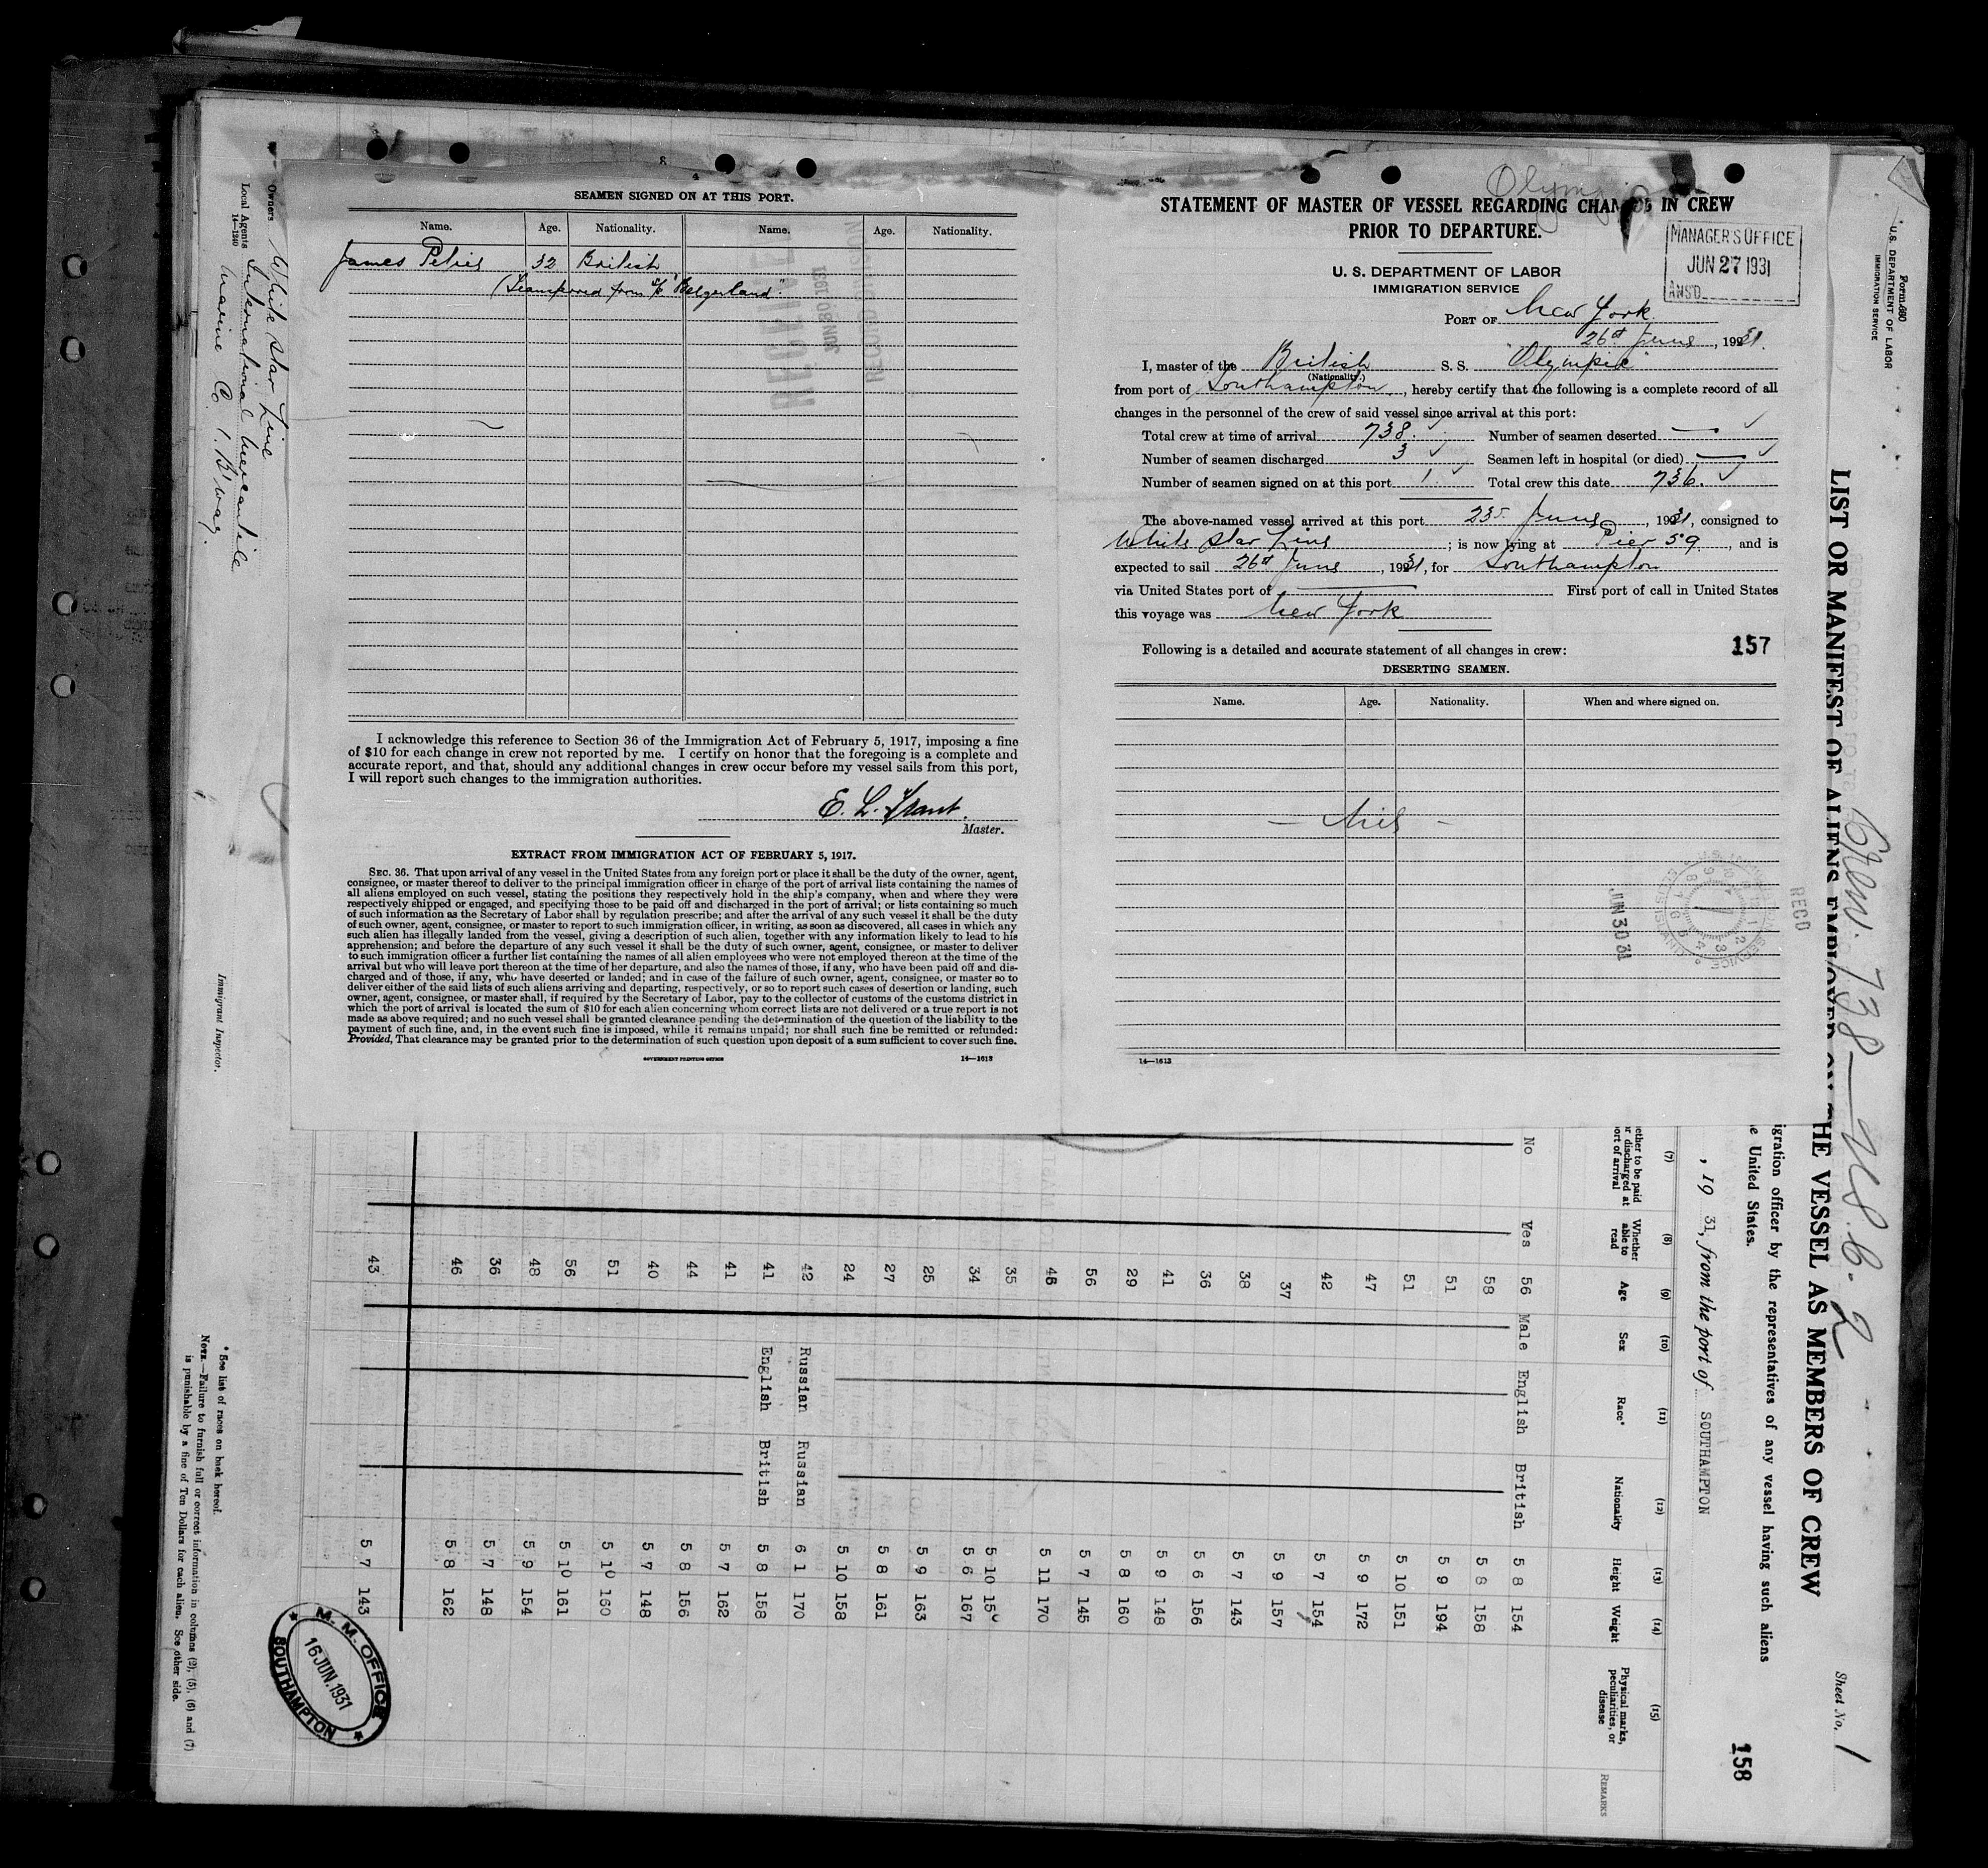 8
SEAMEN SIGNED ON AT THIS PORT.
Name. Age. Nationality. Name. Age. Nationality.
James 32 British
(Transferred from s/s "Belgenland".
JUN 30 1931
RECORD DIVISION
I acknowledge this reference to Section 36 of the Immigration Act of February 5, 1917, imposing a fine
of $10 for each change in crew not reported by me. I certify on honor that the foregoing is a complete and
accurate report, and that, should any additional changes in crew occur before my vessel sails from this port,
I will report such changes to the immigration authorities.
E. L. Trant.
Master.
EXTRACT FROM IMMIGRATION ACT OF FEBRUARY 5, 1917.
SEC. 36. That upon arrival of any vessel in the United States from any foreign port or place it shall be the duty of the owner, agent,
consignee, or master thereof to deliver to the principal immigration officer in charge of the port of arrival lists containing the names of
all aliens employed on such vessel, stating the positions they respectively hold in the ship's company, when and where they were
respectively shipped or engaged, and specifying those to be paid off and discharged in the port of arrival; or lists containing so much
of such information as the Secretary of Labor shall by regulation prescribe; and after the arrival of any such vessel it shall be the duty
of such owner, agent, consignee, or master to report to such immigration officer, in writing, as soon as discovered, all cases in which any
such alien has illegally landed from the vessel, giving a description of such alien, together with any information likely to lead to his
apprehension; and before the departure of any such vessel it shall be the duty of such owner, agent, consignee, or master to deliver
to such immigration officer a further list containing the names of all alien employees who were not employed thereon at the time of the
arrival but who will leave port thereon at the time of her departure, and also the names of those, if any, who have been paid off and dis-
charged and of those, if any, who have deserted or landed; and in case of the failure of such owner, agent, consignee, or master so to
deliver either of the said lists of such aliens arriving and departing, respectively, or so to report such cases of desertion or landing, such
owner, agent, consignee, or master shall, if required by the Secretary of Labor, pay to the collector of customs of the customs district in
which the port of arrival is located the sum of $10 for each alien concerning whom correct lists are not delivered or a true report is not
made as above required; and no such vessel shall be granted clearance pending the determination of the question of the liability to the
payment of such fine, and, in the event such fine is imposed, while it remains unpaid; nor shall such fine be remitted or refunded:
Provided, That clearance may be granted prior to the determination of such question upon deposit of a sum sufficient to cover such fine.
GOVERNMENT PRINTING OFFICE 14—1613
Olympic
STATEMENT OF MASTER OF VESSEL REGARDING CHANGES IN CREW
PRIOR TO DEPARTURE.
MANAGER'S OFFICE
JUN 27 1931
ANS'D
U. S. DEPARTMENT OF LABOR
IMMIGRATION SERVICE
PORT OF New York
26th June, 1931.
I, master of the British S. S. "Olympic"
(Nationality.)
from port of Southampton, hereby certify that the following is a complete record of all
changes in the personnel of the crew of said vessel since arrival at this port:
Total crew at time of arrival 738. Number of seamen deserted —
Number of seamen discharged 3 Seamen left in hospital (or died) —
Number of seamen signed on at this port 1. Total crew this date 736.
The above-named vessel arrived at this port 23rd June, 1931, consigned to
White Star Line; is now lying at Pier 59, and is
expected to sail 26th June, 1931, for Southampton
via United States port of — First port of call in United States
this voyage was New York
Following is a detailed and accurate statement of all changes in crew:
157
DESERTING SEAMEN.
Name. Age. Nationality. When and where signed on.
— Nil —
JUN 30 31
RECD
14—1613
Form 680
U. S. DEPARTMENT OF LABOR
IMMIGRATION SERVICE
Crew. 738 — U.S.C. 2
Sheet No. 1
LIST OR MANIFEST OF ALIENS EMPLOYED ON THE VESSEL AS MEMBERS OF CREW
158
igration officer by the representatives of any vessel having such aliens
e United States.
, 19 31, from the port of SOUTHAMPTON
(7) (8) (9) (10) (11) (12) (13) (14) (15)
ether to be paid
r discharged at
ort of arrival
Whether
able to
read
Age
Sex
Race*
Nationality
Height
Weight
Physical marks,
peculiarities, or
disease
REMARKS
No Yes 56 Male English British 5 8 154
58 5 8 158
51 5 9 194
51 5 10 151
47 5 9 172
42 5 7 154
37 5 9 157
38 5 7 143
36 5 6 156
41 5 9 148
29 5 8 160
56 5 7 145
45 5 11 170
35 5 10
34 5 6 167
25 5 9 163
27 5 8 161
24 5 10 158
42 Russian Russian 6 1 170
41 English British 5 8 158
41 5 7 162
44 5 8 156
40 5 7 148
51 5 10 160
56 5 10 161
48 5 9 154
36 5 7 148
46 5 8 162
43 5 7 143
M. M. OFFICE
16 JUN. 1931
SOUTHAMPTON
Owners White Star Line
Local Agents International Mercantile
Marine Co. 1. B'way.
14—1240
Immigrant Inspector.
* See list of races on back hereof.
NOTE.—Failure to furnish full or correct information in columns (2), (5), (6) and (7)
is punishable by a fine of Ten Dollars for each alien. See other side.